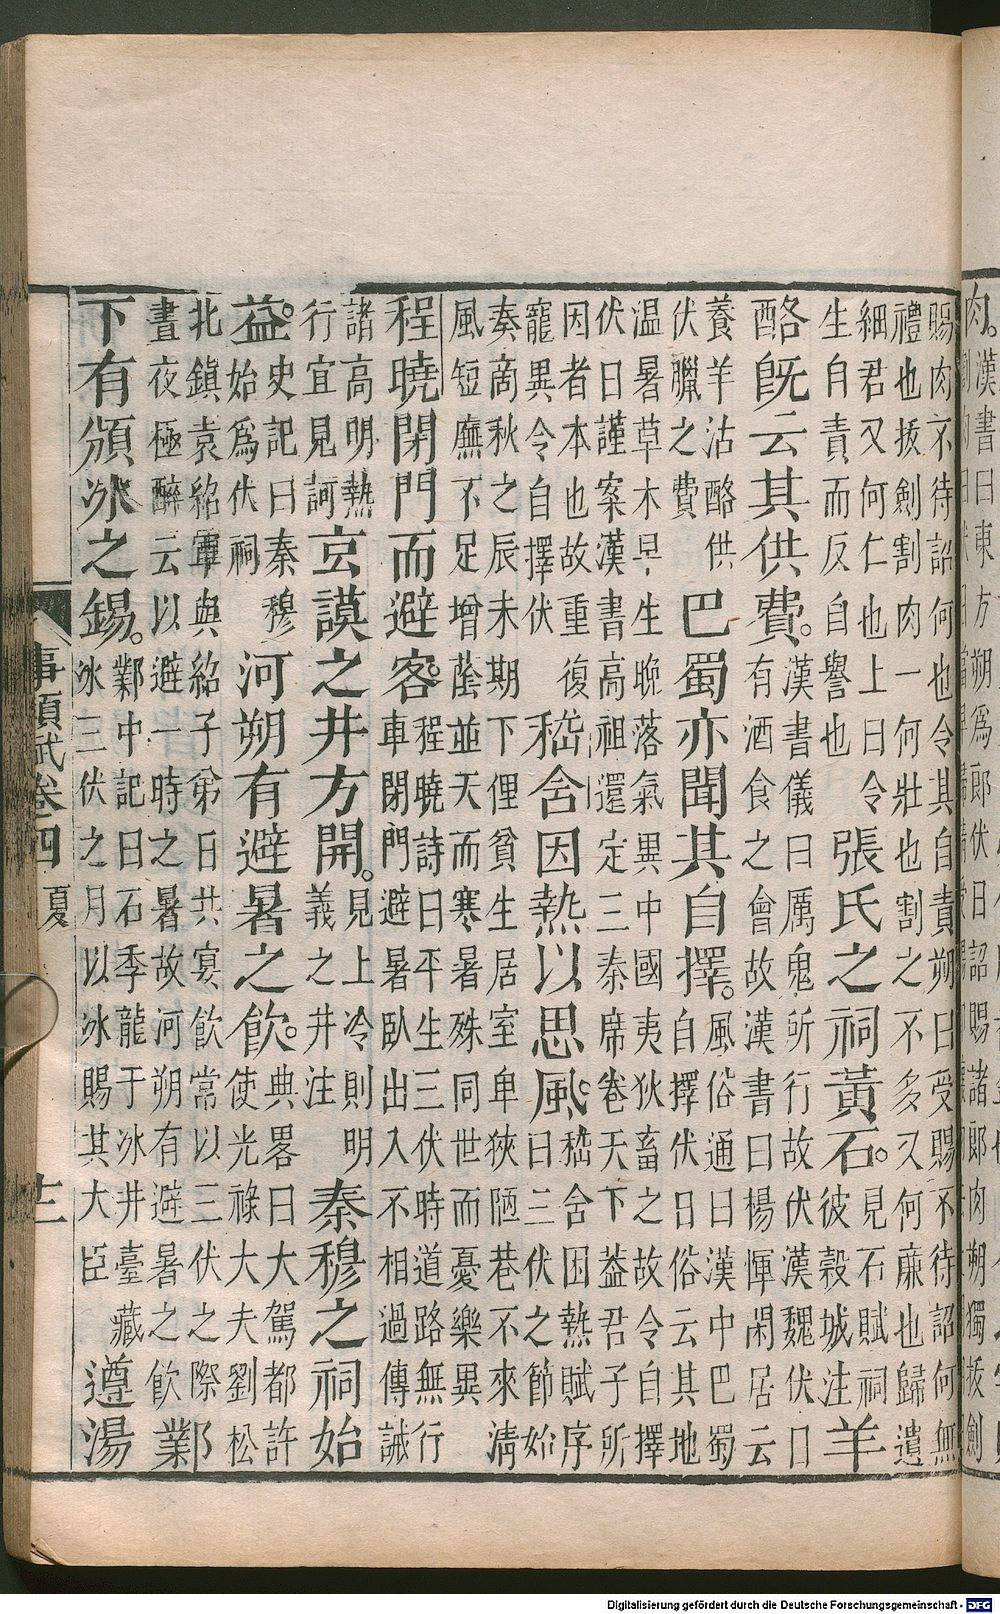 肉。漢書曰東方朔為郎伏日詔賜諸郎肉朔獨拔劍
賜肉不待詔何也令其自責朔曰受賜不待詔何無
禮也拔劍割肉一何壯也割之不多又何廉也歸遺
細君又何仁也上曰令
生自責而反自譽也
張氏之祠黃石。
見石賦祠
彼穀城注
羊
酪旣云其供費。
漢書儀曰厲鬼所行故伏漢魏伏日
有酒食之會故漢書曰楊惲閑居云
養羊沽酪供
伏臘之費
巴蜀亦聞其自擇。
風俗通曰漢中巴蜀
自擇伏日俗云其地
温暑草木早生晚落氣異中國夷狄畜之故令自擇
伏日謹案漢書高祖還定三秦席卷天下益君子所
因者本也故重復
寵異令自擇伏
嵇舍因熱以思風。
嵇舍困熱賦序
曰三伏之節始
奏啇秋之辰未期下俚貧生居室卑狹陋巷不來淸
風短廡不足增䕃並天而寒暑殊同世而憂樂異
程曉閉門而避客。
程曉詩曰平生三伏時道路無行
車閉門避暑臥出入不相過傳誡
諸高明熱
行宜見訶
玄謨之井方開。
見上冷則明
義之井注
秦穆之祠始
益。
史記曰秦穆
始爲伏祠
河朔有避暑之飲。
典畧曰大駕都許
使光祿大夫劉松
北鎮袁紹軍與紹子弟日共宴飲常以三伏之際
晝夜極醉云以避一時之暑故河朔有避暑之飲
鄴
下有頒冰之錫。
鄴中記曰石季龍于冰井臺藏
冰三伏之月以冰賜其大臣
遵湯
事類賦卷四 夏 十二
Digitalisierung gefördert durch die Deutsche Forschungsgemeinschaft - DFG